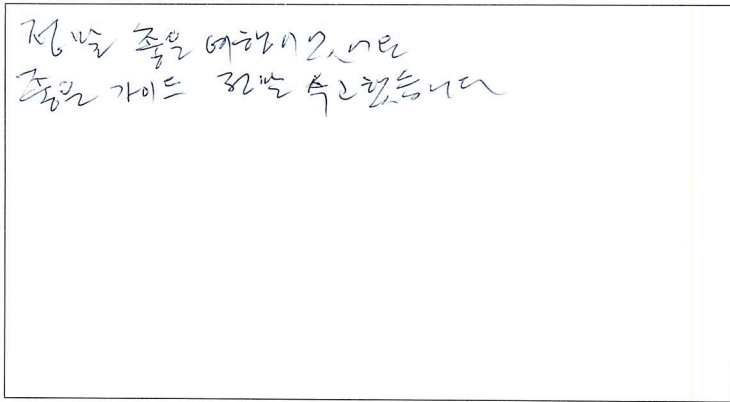 정말 좋은 여행이었어요
좋은 가이드 정말 수고했습니다